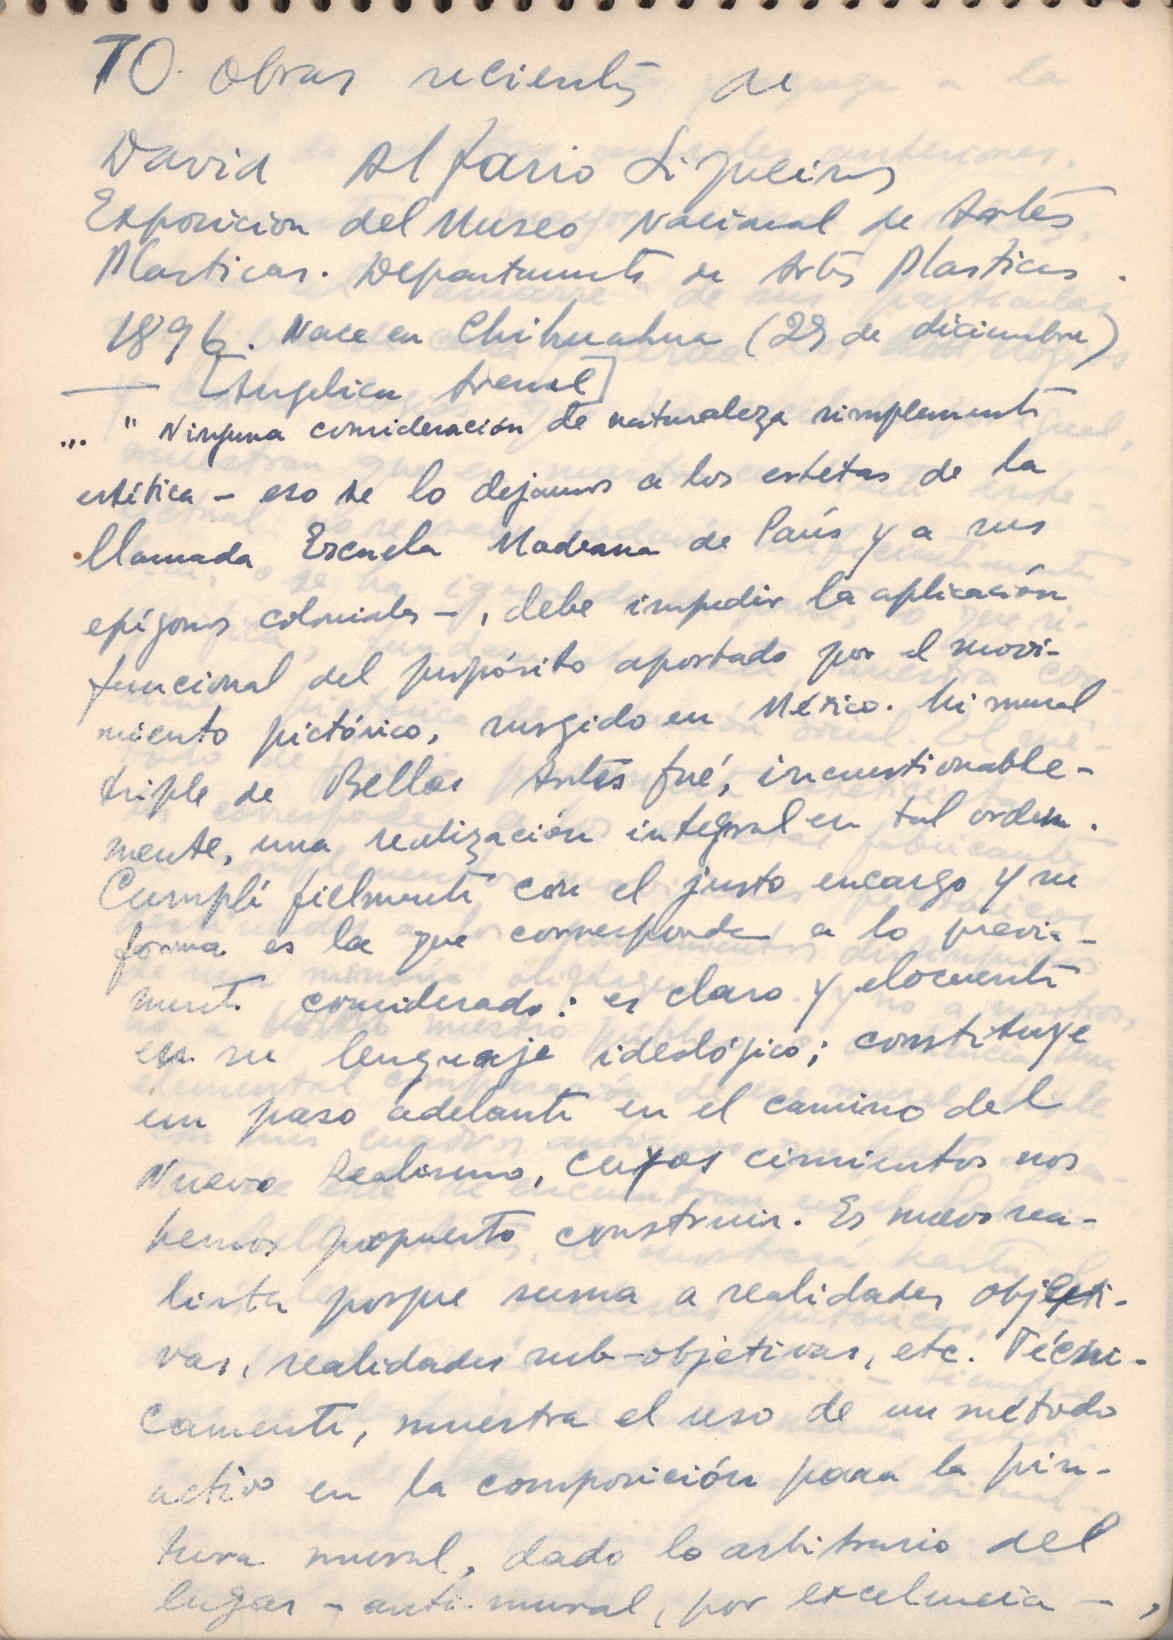 70 obras recientes de
David Alfaro Siqueiros
Exposicion del Museo Nacional de Artes
Plasticas. Departamento de Artes Plasticas.
1896. Nace en Chihuahua (29 de diciembre)
— [Angelica Arenal]
... " Ninguna consideración de naturaleza simplemente
estética – eso se lo dejamos a los estetas de la
llamada Escuela Moderna de París y a sus
epígonos coloniales –, debe impedir la aplicación
funcional del propósito aportado por el movi-
miento pictórico, surgido en México. Mi mural
triple de Bellas Artes fué, incuestionable-
mente, una realización integral en tal orden.
Cumplí fielmente con el justo encargo y su
forma es la que corresponde a lo previa-
mente considerado: es claro y elocuente
en su lenguaje ideológico; constituye
un paso adelante en el camino del
Nuevo Realismo, cuyos cimientos nos
hemos propuesto construir. Es nuevo rea-
lista porque suma a realidades objeti-
vas, realidades sub-objetivas, etc. Técni-
camente, muestra el uso de un método
activo en la composición para la pin-
tura mural, dado lo arbitrario del
lugar – anti-mural, por excelencia –,